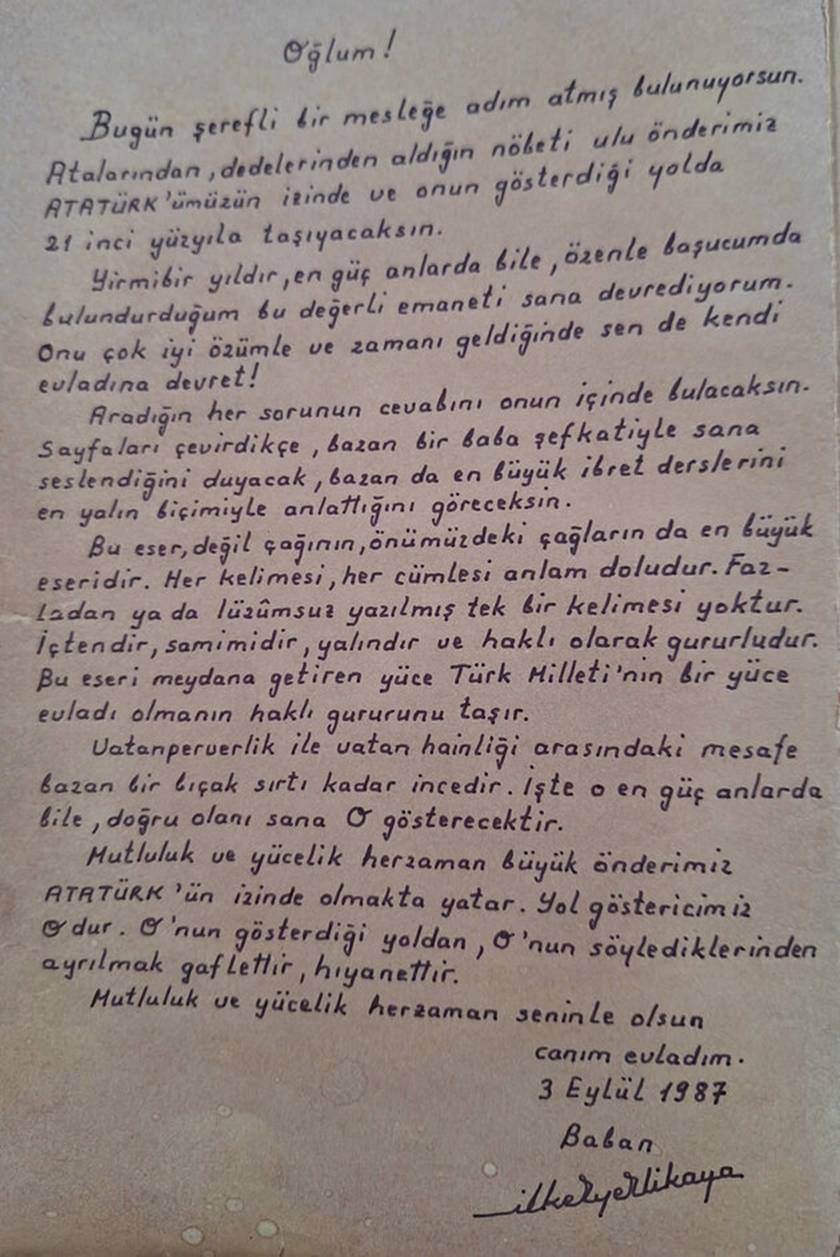 Oğlum!
Bugün şerefli bir mesleğe adım atmış bulunuyorsun.
Atalarından, dedelerinden aldığın nöbeti ulu önderimiz
ATATÜRK'ümüzün izinde ve onun gösterdiği yolda
21 inci yüzyıla taşıyacaksın.
Yirmibir yıldır, en güç anlarda bile, özenle başucumda
bulundurduğum bu değerli emaneti sana devrediyorum.
Onu çok iyi özümle ve zamanı geldiğinde sen de kendi
evladına devret!
Aradığın her sorunun cevabını onun içinde bulacaksın.
Sayfaları çevirdikçe, bazan bir baba şefkatiyle sana
seslendiğini duyacak, bazan da en büyük ibret derslerini
en yalın biçimiyle anlattığını göreceksin.
Bu eser, değil çağının, önümüzdeki çağların da en büyük
eseridir. Her kelimesi, her cümlesi anlam doludur. Faz-
ladan ya da lüzûmsuz yazılmış tek bir kelimesi yoktur.
İçtendir, samimidir, yalındır ve haklı olarak gururludur.
Bu eseri meydana getiren yüce Türk Milleti'nin bir yüce
evladı olmanın haklı gururunu taşır.
Vatanperverlik ile vatan hainliği arasındaki mesafe
bazan bir bıçak sırtı kadar incedir. İşte o en güç anlarda
bile, doğru olanı sana O gösterecektir.
Mutluluk ve yücelik herzaman büyük önderimiz
ATATÜRK'ün izinde olmakta yatar. Yol göstericimiz
O dur. O'nun gösterdiği yoldan, O'nun söylediklerinden
ayrılmak gaflettir, hıyanettir.
Mutluluk ve yücelik herzaman seninle olsun
canım evladım.
3 Eylül 1987
Baban
ilkeryerlikaya